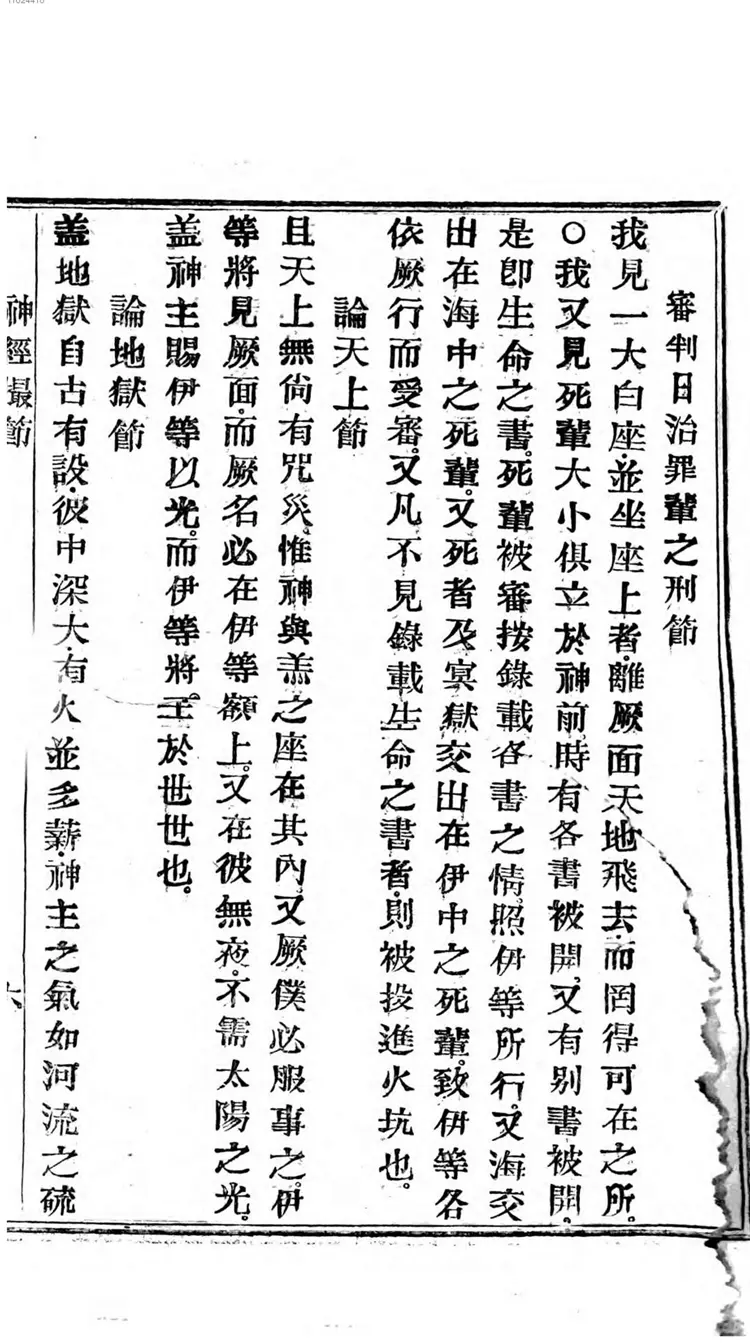 審判日治罪輩之刑節
我見一大白座、並坐座上者、離厥面天地飛去、而罔得可在之所。
○我又見死輩大小俱立於神前、時有各書被開、又有別書被開、
是卽生命之書。死輩被審按錄載各書之情、照伊等所行。又海交
出在海中之死輩。又死者及冥獄交出在伊中之死輩。致伊等各
依厥行而受審。又凡不見錄載生命之書者、則被投進火坑也。
論天上節
且天上無尙有咒災。惟神與羔之座在其內。又厥僕必服事之。伊
等將見厥面、而厥名必在伊等額上。又在彼無夜。不需太陽之光。
盖神主賜伊等以光。而伊等將王於世世也。
論地獄節
盖地獄自古有設、彼中深大、有火並多薪、神主之氣如河流之硫
神經撮節
六